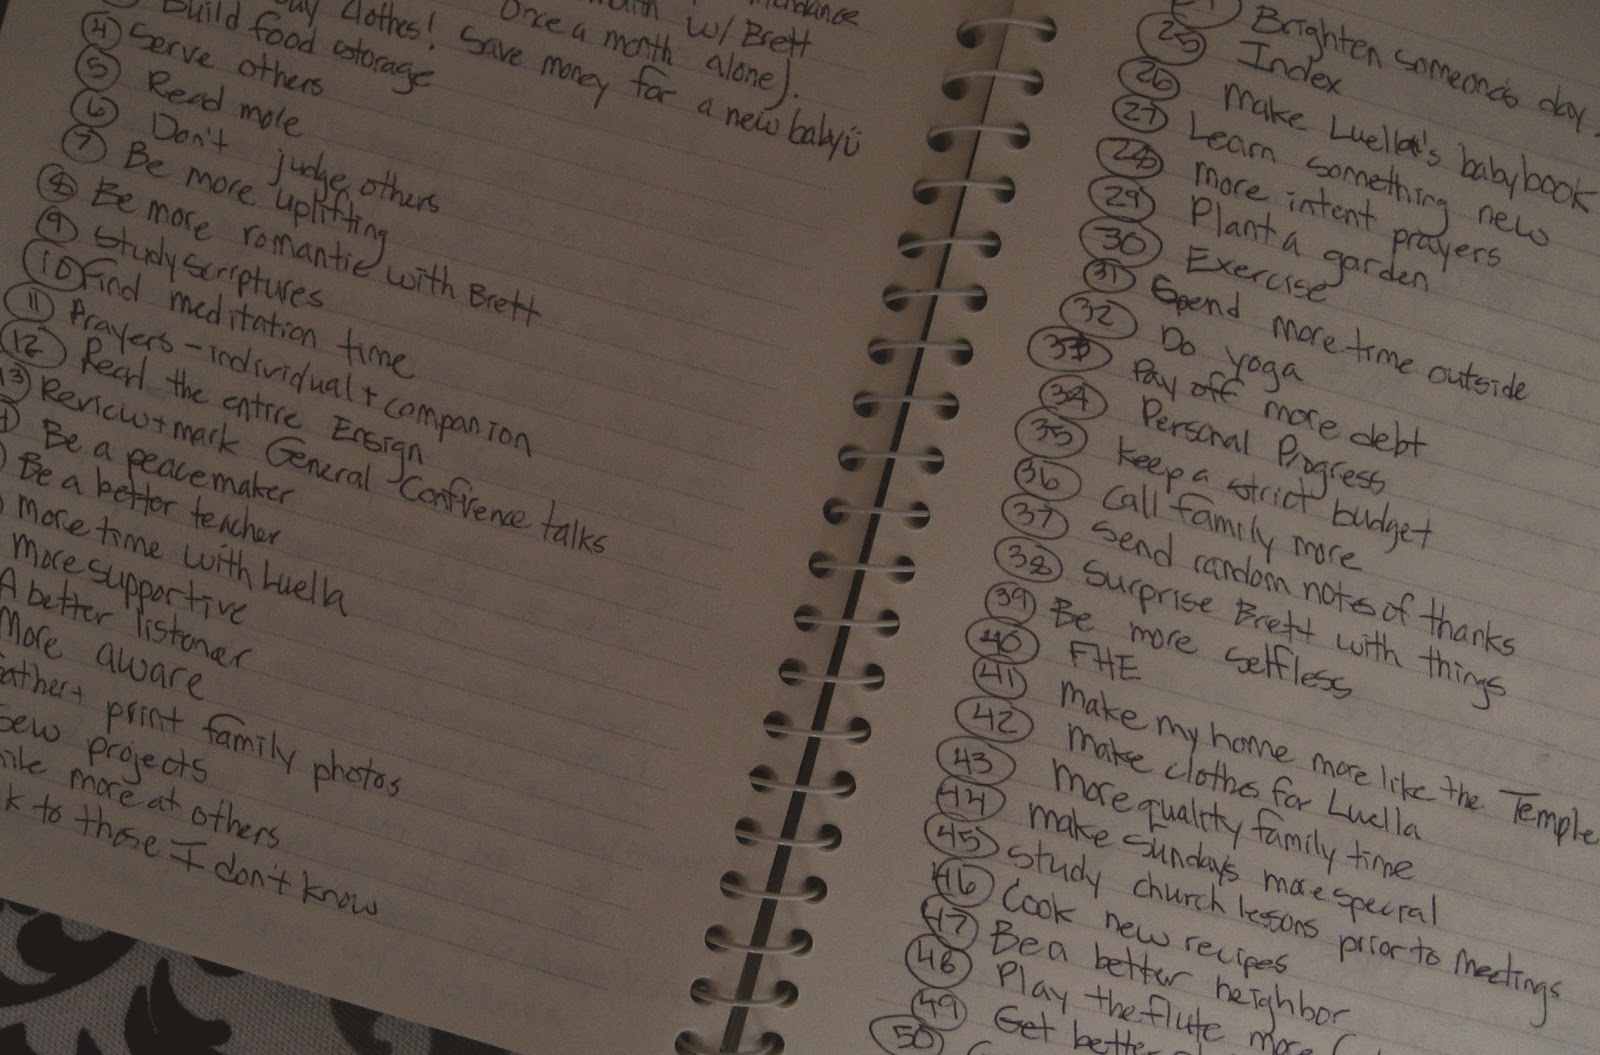 w/ Brett
Once a month alone).
clothes! Save money for a new baby ü
Build food storage
④ Serve others
⑤ Read more
⑥ Don't judge others
⑦ Be more uplifting
⑧ Be more romantic with Brett
⑨ Study scriptures
⑩ Find meditation time
⑪ Prayers - individual + companion
⑫ Read the entire Ensign
13 Review + mark General Confrence talks
Be a peacemaker
Be a better teacher
more time with Luella
more supportive
A better listener
More aware
print family photos
Sew projects
more at others
to those I don't know
Brighten someone's day.
25 Index
26 Make Luella's babybook
27 Learn something new
28 more intent prayers
29 Plant a garden
30 Exercise
31 Spend more time outside
32 Do yoga
33 Pay off more debt
34 Personal Progress
35 Keep a strict budget
36 Call family more
37 Send random notes of thanks
38 Surprise Brett with things
39 Be more selfless
40 FHE
41 Make my home more like the Temple
42 Make clothes for Luella
43 More quality family time
44 Make Sundays more special
45 Study church lessons prior to Meetings
46 Cook new recipes
47 Be a better neighbor
48 Play the flute more
49 Get better
50